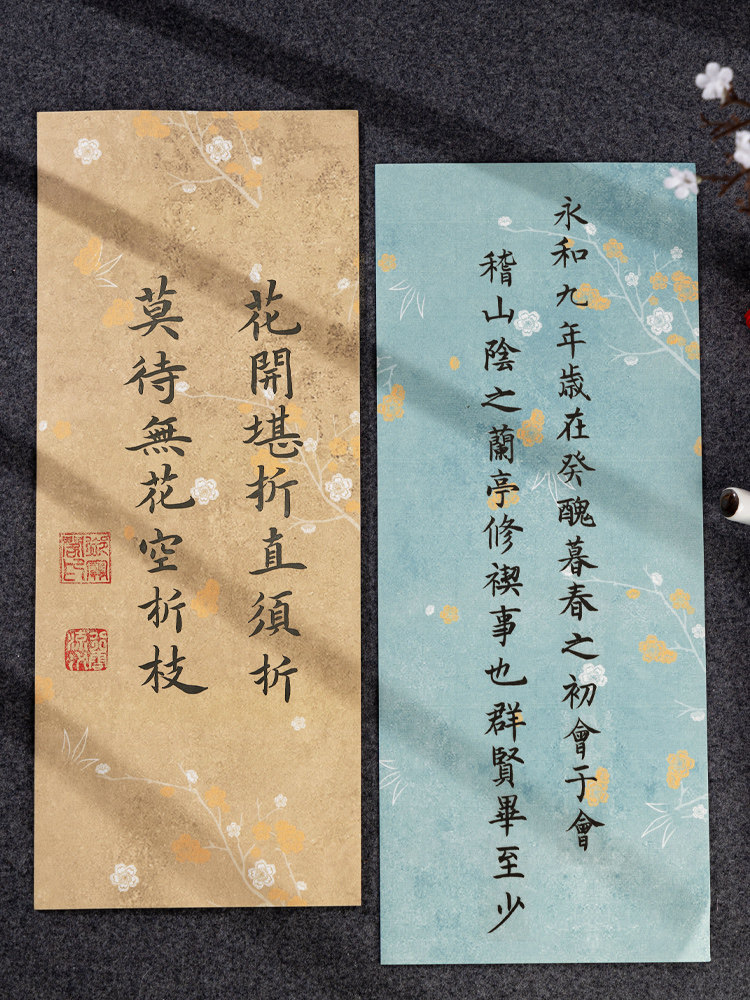 花開堪折直須折
莫待無花空折枝
永和九年歲在癸醜暮春之初會于會
稽山陰之蘭亭修禊事也群賢畢至少